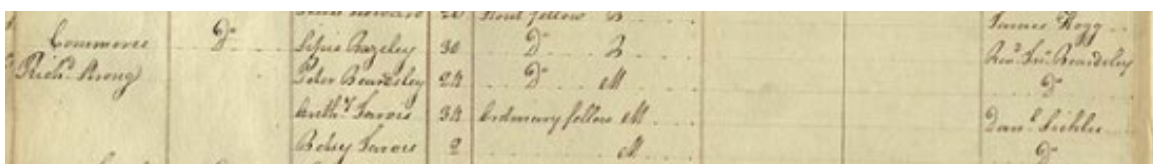 Howard 26 Stout fellow B James Hogg
Commerce Do Bazeley 30 Do B Revd Jno Beardsley
Richd Strong Peter Beardsley 24 Do M Do
Anthy Jarvis 34 Ordinary fellow M Danl Sickles
Betsey Jarvis 9 M Do